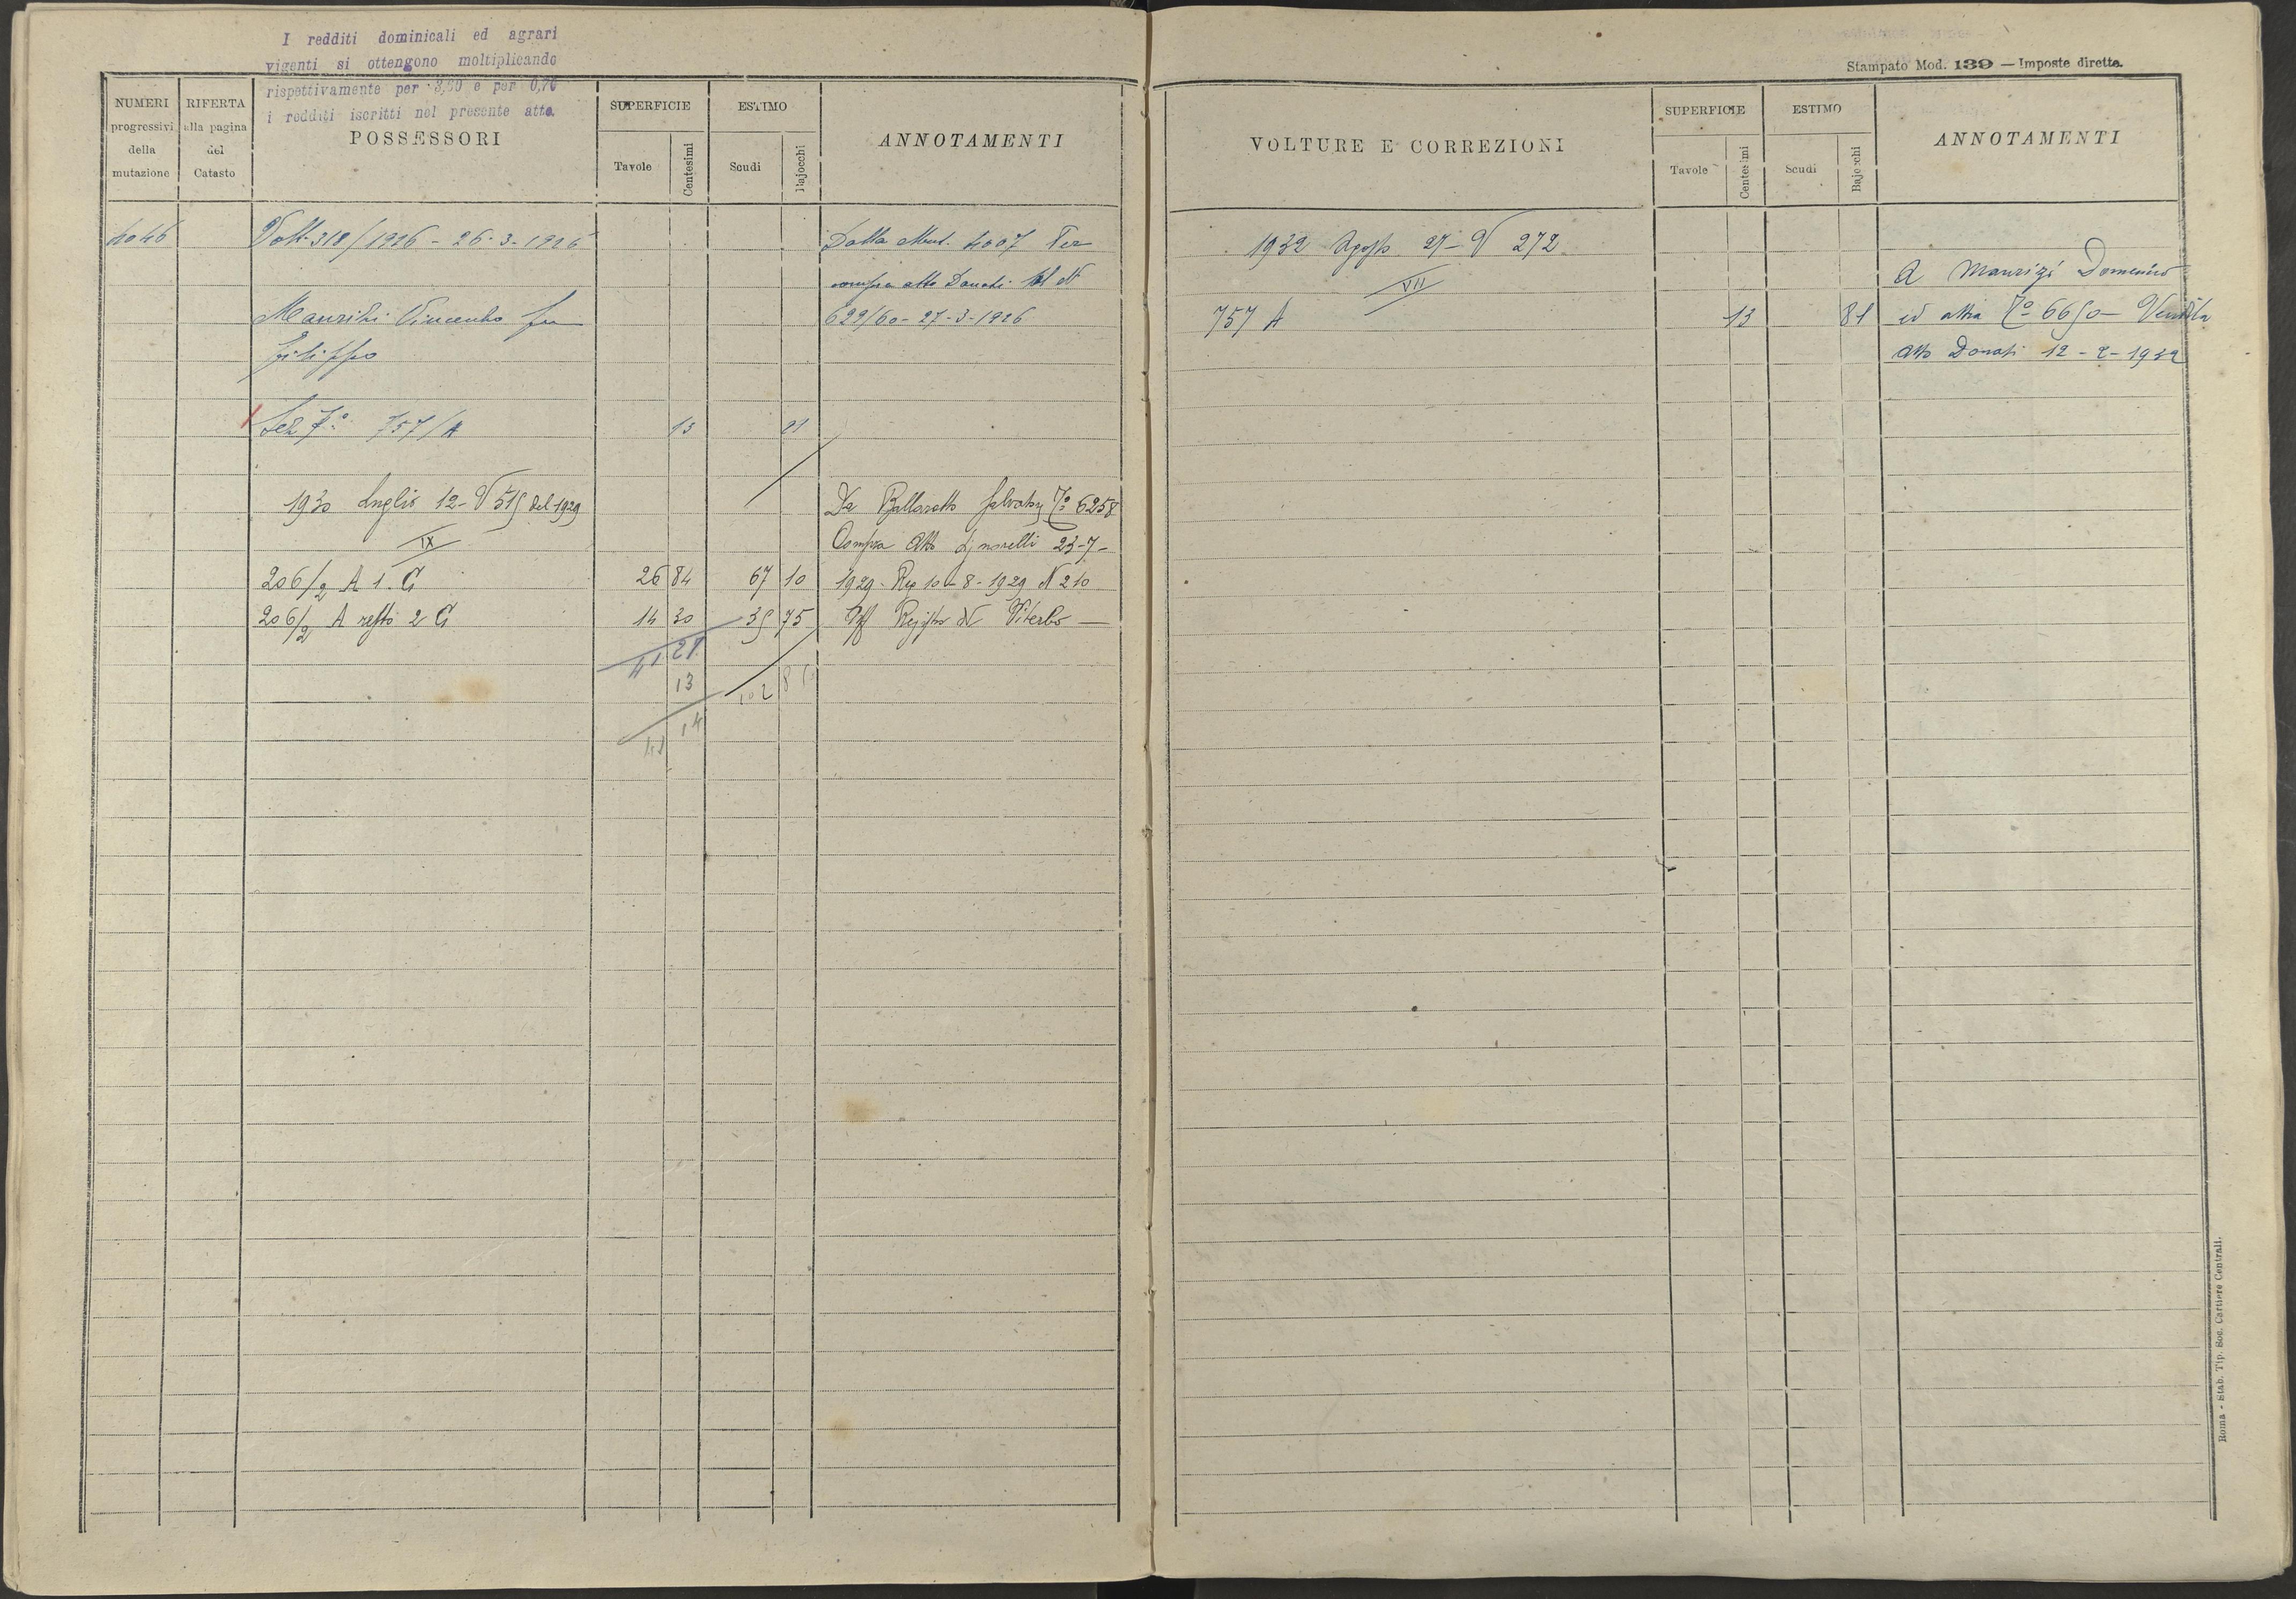 I redditi dominicali ed agrari
vigenti si ottengono moltiplicando
rispettivamente per 3,60 e per 0,70
i redditi iscritti nel presente atto.
Stampato Mod. 139 — Imposte dirette.
NUMERI progressivi della mutazione
RIFERTA alla pagina del Catasto
POSSESSORI
SUPERFICIE
Tavole Centesimi
ESTIMO
Scudi Bajocchi
ANNOTAMENTI
4046 Volt. 318/1926 - 26-3-1926 Dalla Mut. 4007 Per
compra atto Donati
Maurizi Vincenzo fu 629/60 - 27-3-1926
Filippo
Sez 7º 757/A 13 81
1930 Luglio 12 - V 515 del 1929 Da Salvatore 7º 6258
IX Compra Atto 23-7-
206/2 A 1. G 26 84 67 10 1929 - Reg 10-8-1929 N 210
206/2 A resto 2 G 14 30 35 75 Uff Registro di Viterbo —
41 21
13 102 8
41 14
VOLTURE E CORREZIONI
SUPERFICIE
Tavole Centesimi
ESTIMO
Scudi Bajocchi
ANNOTAMENTI
1932 Agosto 27 - V 272
VII A Maurizi Domenico
757 A 13 81 ed altra 7º 6650 - Vendita
Atto Donati 12-2-1932
Roma - Stab. Tip. Soc. Cartiere Centrali.